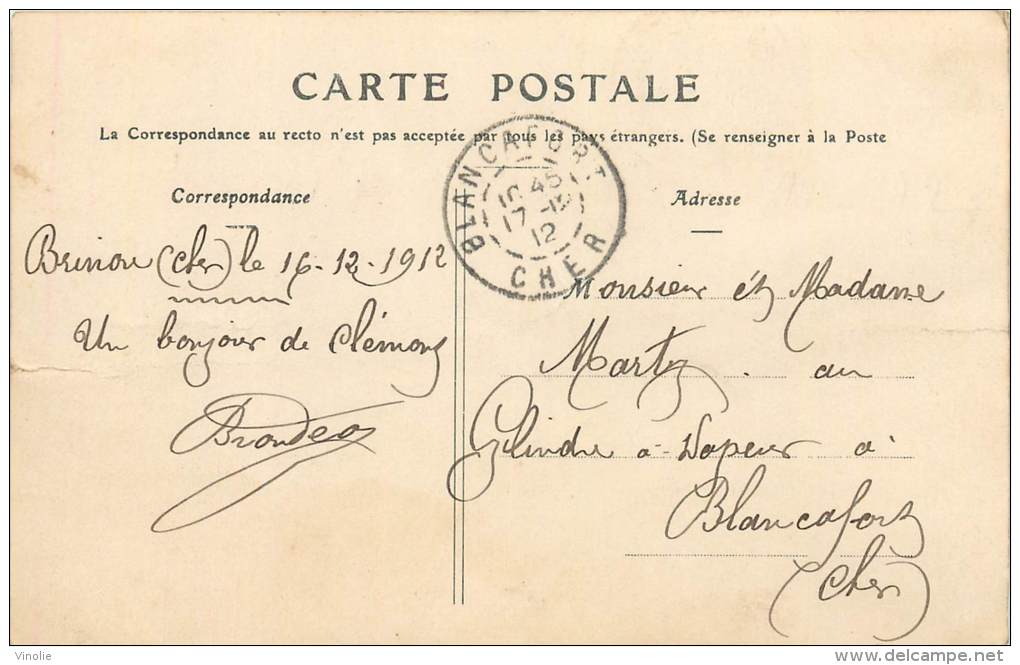 CARTE POSTALE
La Correspondance au recto n'est pas acceptée par tous les pays étrangers. (Se renseigner à la Poste
Correspondance
Brinon (Cher) le 16-12-1912
Un bonjour de Clémont
BLANCAFORT
45
17 12
12
CHER
Adresse
Monsieur et Madame
Marty . au
Cylindre à Vapeur à
Blancafort
(Cher)
Vinolie
delcampe.net